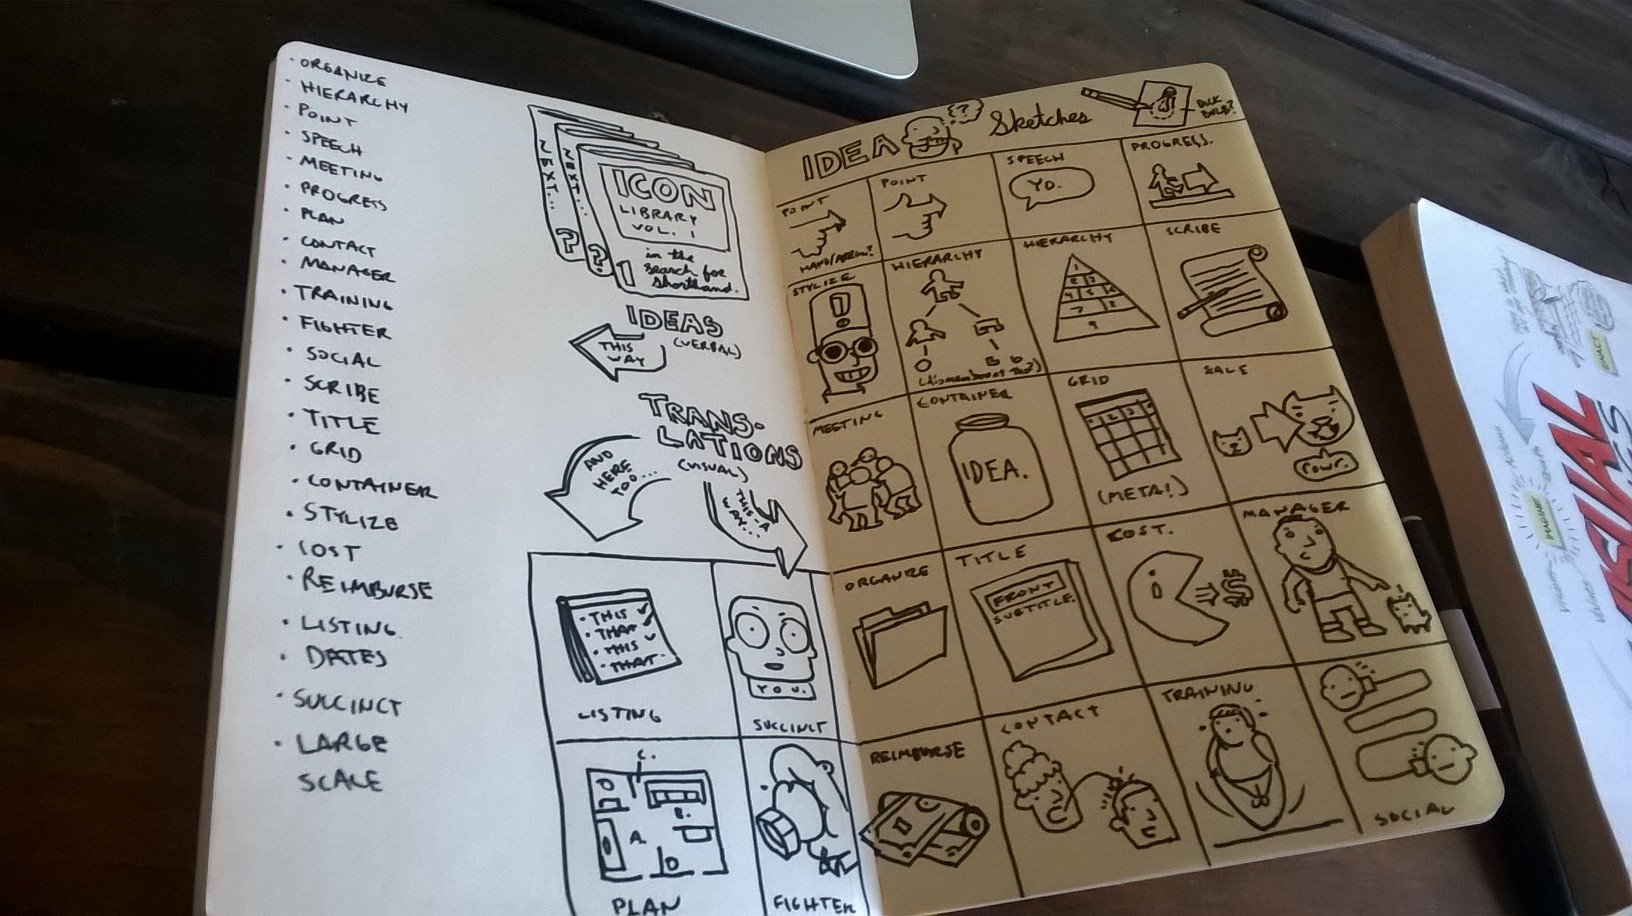 · ORGANIZE
· HIERARCHY
· POINT
· SPEECH
· MEETING
· PROGRESS
· PLAN
· CONTACT
· MANAGER
· TRAINING
· FIGHTER
· SOCIAL
· SCRIBE
· TITLE
· GRID
· CONTAINER
· STYLIZE
· COST
· REIMBURSE
· LISTING
· DATES
· SUCCINCT
· LARGE
SCALE
NEXT...
?
NEXT...
?
ICON
LIBRARY
VOL. 1
in the
search for
shorthand.
1
IDEAS
(VERBAL)
THIS
WAY
TRANS-
LATIONS
(VISUAL)
AND
HERE
TOO...
THIS-A
WAY...
· THIS
· THAT
· THIS
· THAT
LISTING
YOU.
SUCCINCT
C.
B.
A.
D
PLAN
FIGHTER
IDEA
?
Sketches
DUCK
BULB?
POINT
HAND/ARROW?
POINT
SPEECH
YO.
PROGRESS.
STYLIZE
!
HIERARCHY
HIERARCHY
SCRIBE
MEETING
CONTAINER
IDEA.
GRID
(META!)
SCALE
rowr.
ORGANIZE
TITLE
FRONT
SUBTITLE.
COST.
$
MANAGER
REIMBURSE
CONTACT
TRAINING
SOCIAL
IMAGINE
ENACT
VISUAL